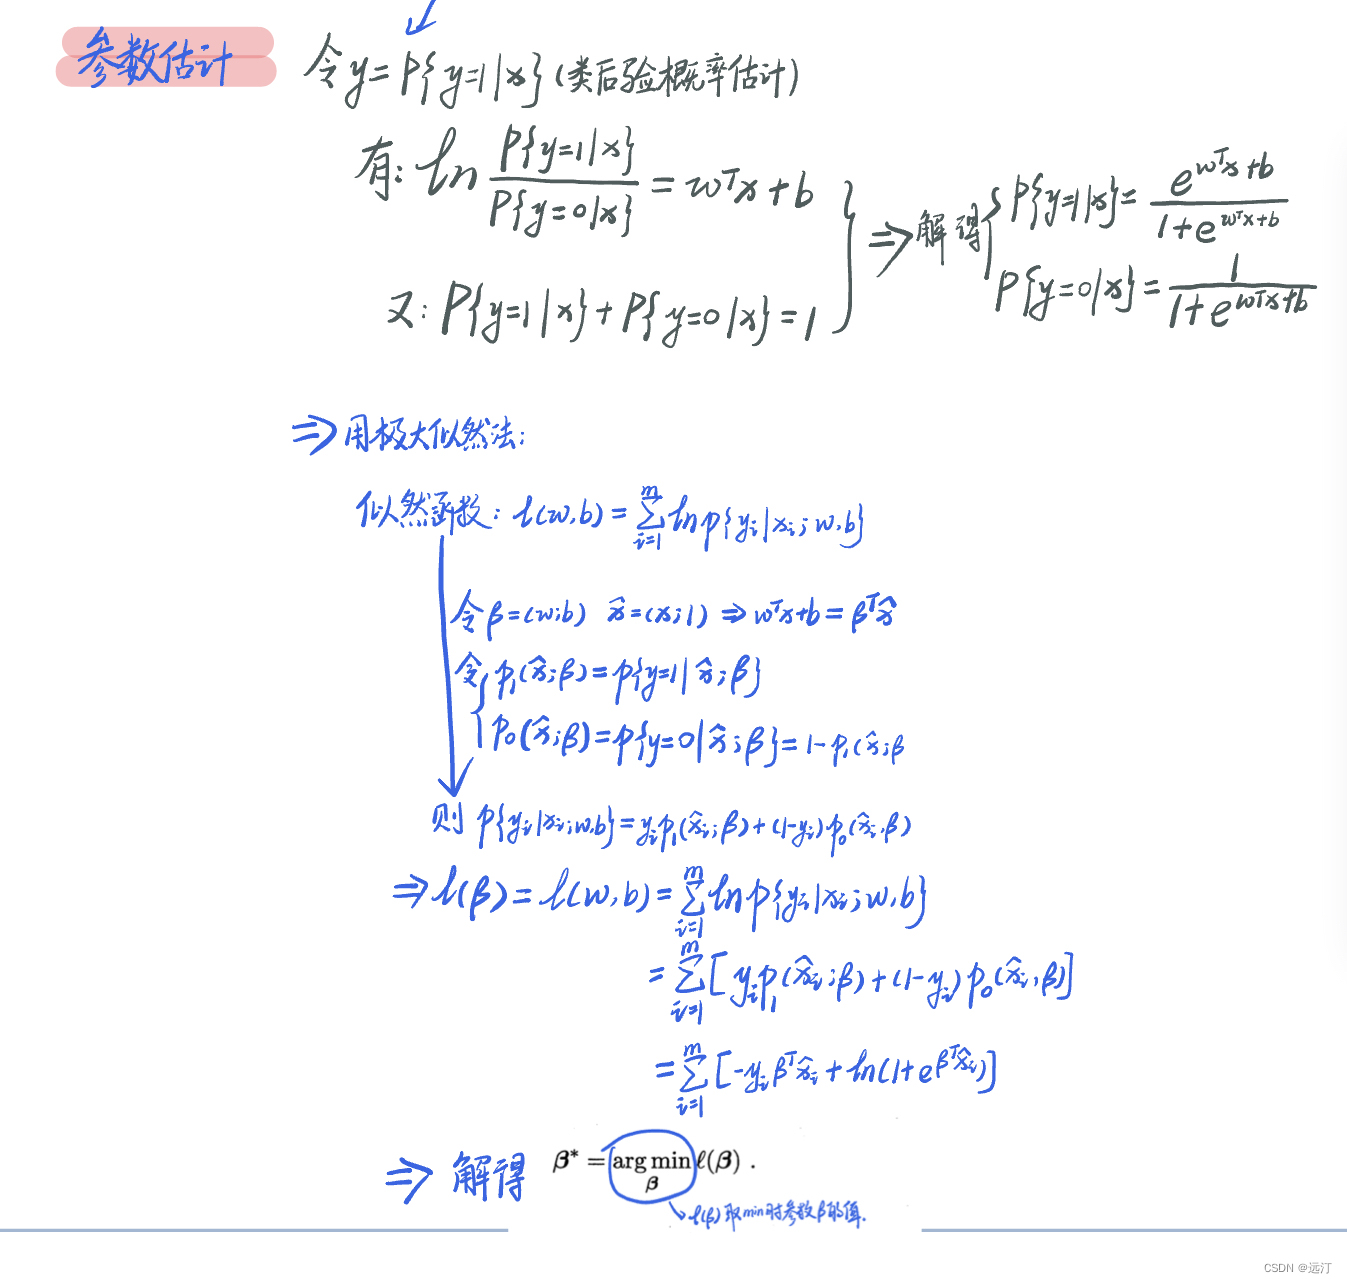 参数估计 令y=P{y=1|x}(类后验概率估计)
有: ln P{y=1|x}/P{y=0|x} = wᵀx+b
又: P{y=1|x}+P{y=0|x}=1
⇒解得 { P{y=1|x}= e^(wᵀx+b)/(1+e^(wᵀx+b))
P{y=0|x}= 1/(1+e^(wᵀx+b))
⇒用极大似然法:
似然函数: ℓ(w,b)=∑_{i=1}^{m} ln p{yᵢ|xᵢ;w,b}
令β=(w;b) x̂=(x;1) ⇒ wᵀx+b=βᵀx̂
令 { p₁(x̂;β)=p{y=1|x̂;β}
p₀(x̂;β)=p{y=0|x̂;β}=1-p₁(x̂;β
则 p{yᵢ|xᵢ;w,b}=yᵢp₁(x̂ᵢ;β)+(1-yᵢ)p₀(x̂ᵢ,β)
⇒ℓ(β)=ℓ(w,b)=∑_{i=1}^{m} ln p{yᵢ|xᵢ;w,b}
=∑_{i=1}^{m}[yᵢp₁(x̂ᵢ;β)+(1-yᵢ)p₀(x̂ᵢ,β)]
=∑_{i=1}^{m}[-yᵢβᵀx̂ᵢ+ln(1+e^(βᵀx̂ᵢ))]
⇒解得 β* = arg min_β ℓ(β) .
ℓ(β)取min时参数β的值.
CSDN @远汀